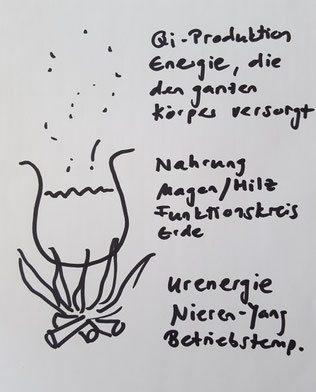 Qi-Produktion
Energie, die
den ganzen
Körper versorgt
Nahrung
Magen/Milz
Funktionskreis
Erde
Urenergie
Nieren-Yang
Betriebstemp.